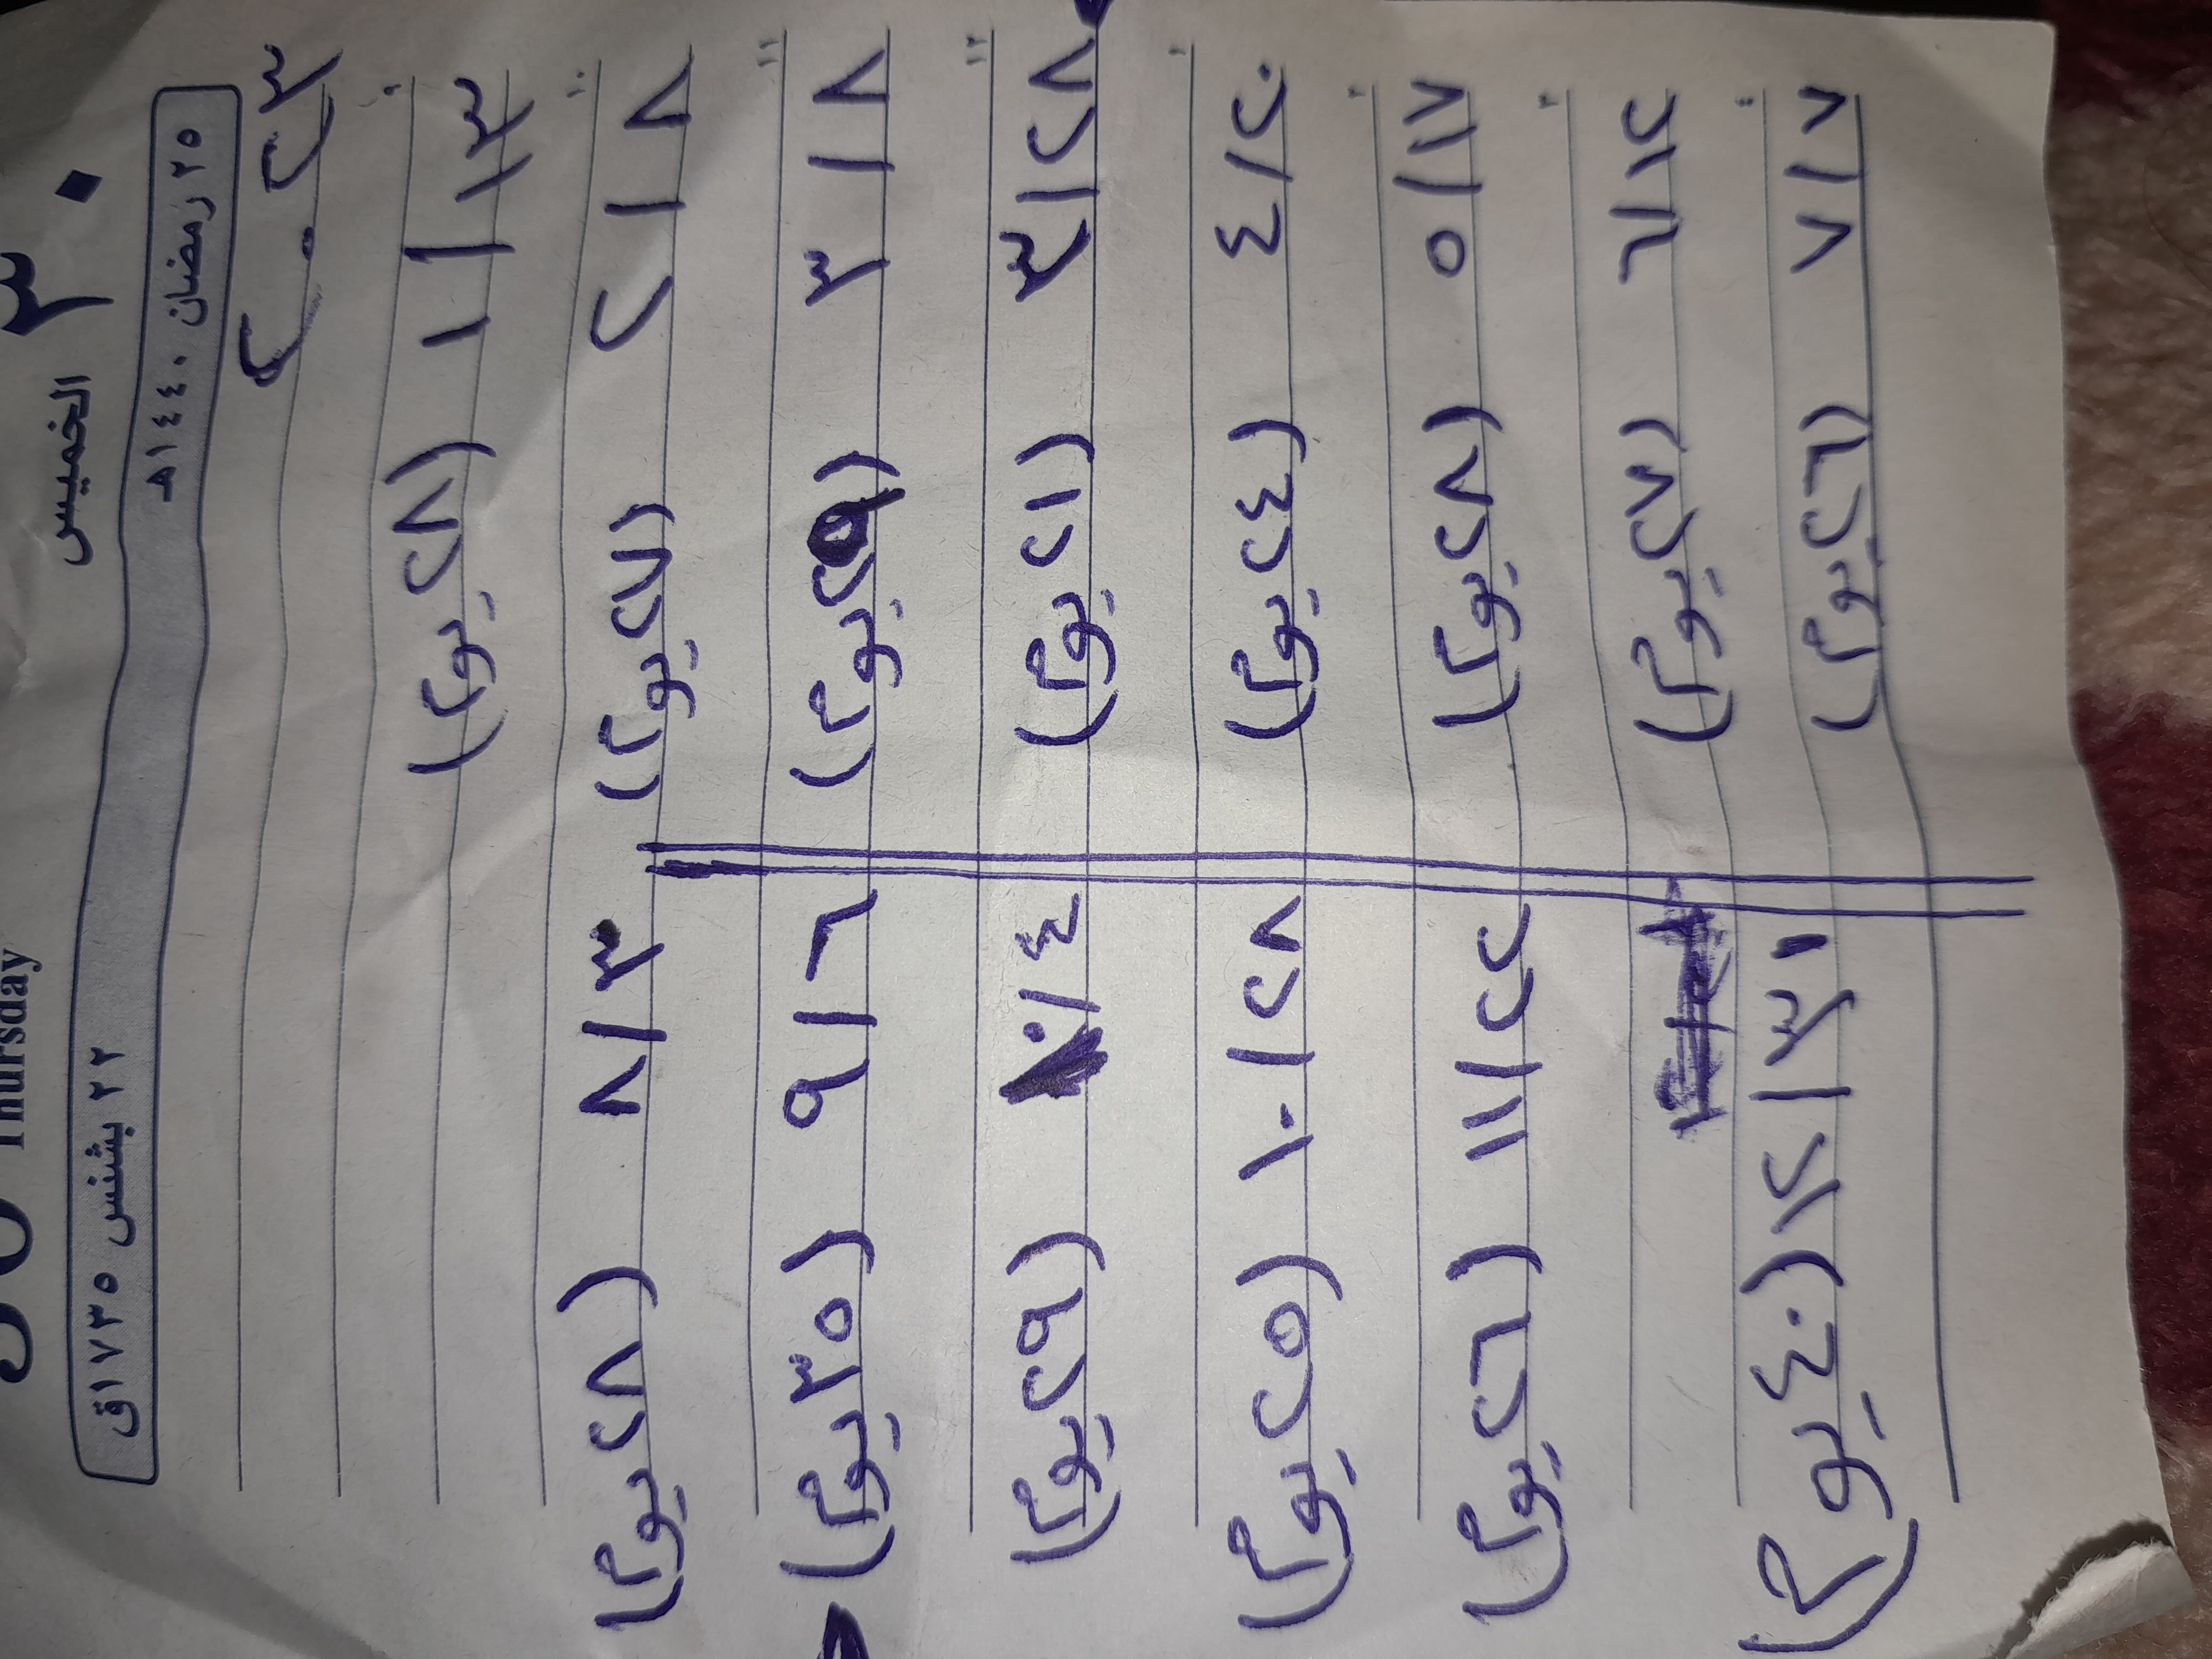 ٣٠ الخميس Thursday
٢٥ رمضان ١٤٤٠هـ ٢٢ بشنس ١٧٣٥ق
٢٠٢٣
١/١٣ (٢٨ يوم)
٢/٨ (٢٧ يوم)
٣/٨ (٢٩ يوم)
٣/٢٨ (٢١ يوم)
٤/٢٠ (٢٤ يوم)
٥/١٧ (٢٨ يوم)
٦/١٢ (٢٧ يوم)
٧/٧ (٢٦ يوم)
٨/٣ (٢٨ يوم)
٩/٦ (٣٠ يوم)
١٠/٤ (٢٩ يوم)
١٠/٢٨ (٢٥ يوم)
١١/٢٢ (٢٦ يوم)
١٢/٣١ (٤٠ يوم)